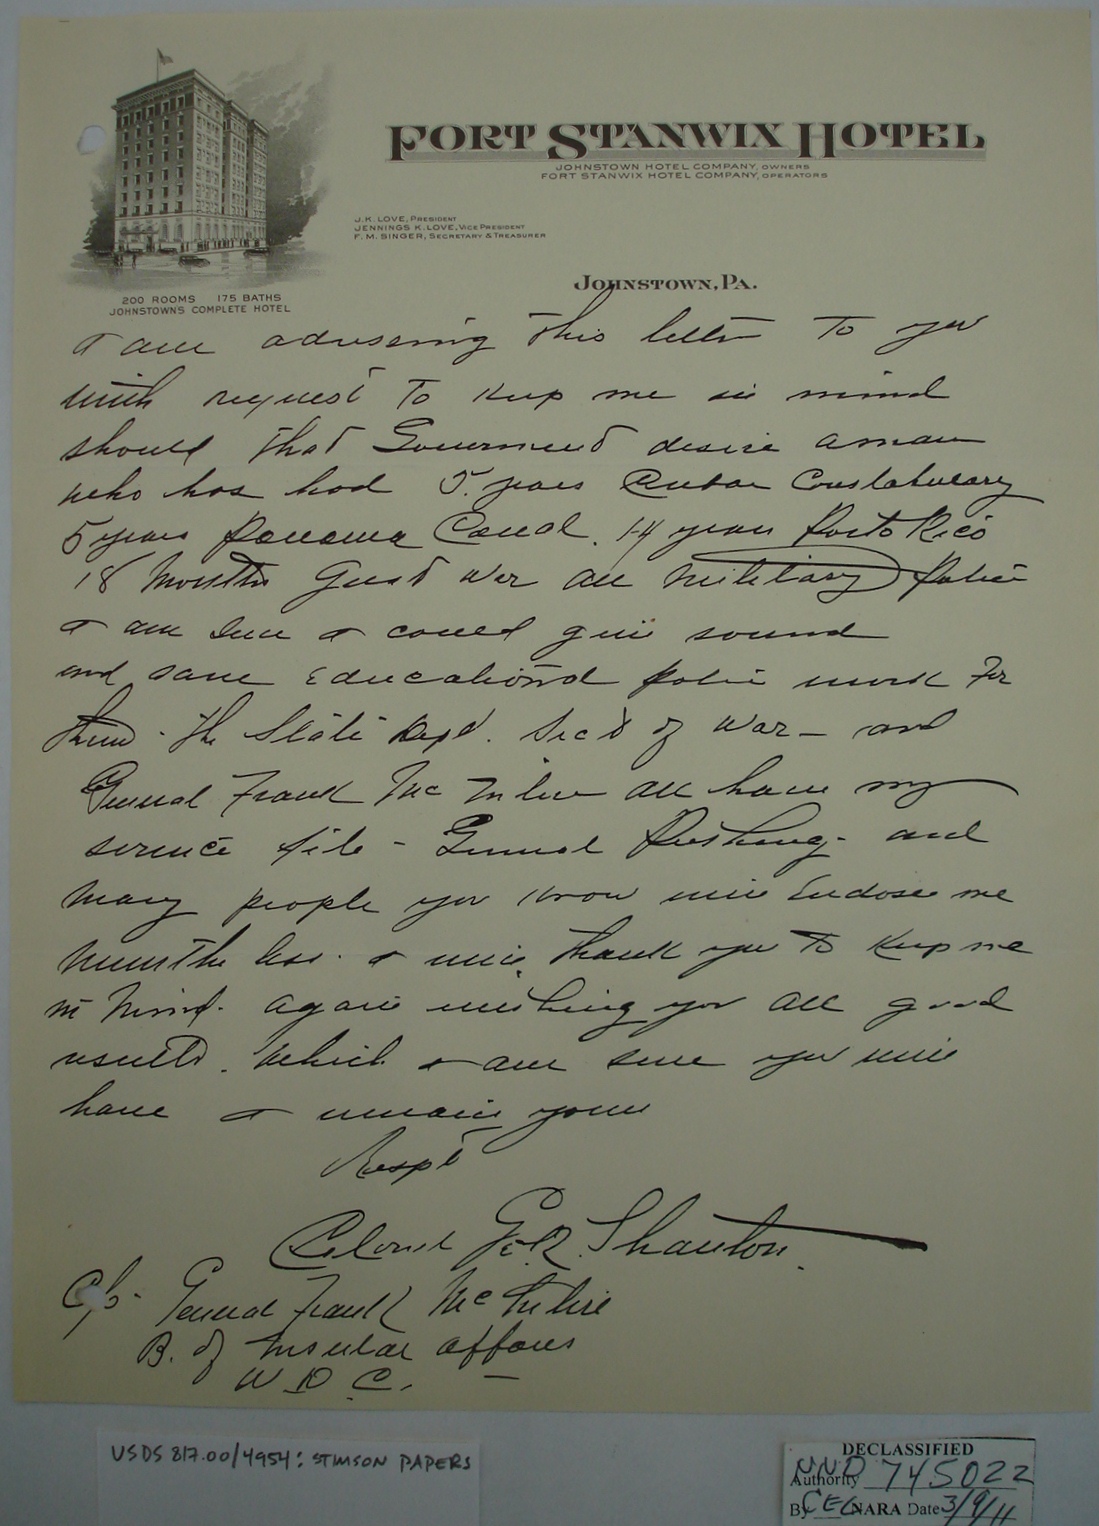 FORT STANWIX HOTEL
JOHNSTOWN HOTEL COMPANY, OWNERS
FORT STANWIX HOTEL COMPANY, OPERATORS
J.K. LOVE, PRESIDENT
JENNINGS K. LOVE, VICE PRESIDENT
F. M. SINGER, SECRETARY & TREASURER
JOHNSTOWN, PA.
200 ROOMS 175 BATHS
JOHNSTOWNS COMPLETE HOTEL
I am adressing this letter to you
with request to keep me in mind
should that Government desire a man
who has had 5. years Cuban Constabulary
5 years Panama Canal. 14 years Porto Rico
18 Months Great War all Military Police
I am sure I could give sound
and sane Educational police work For
them. The State Dept. Sec't of War - and
General Frank McIntire all have my
service file - General Pershing. and
many people you know will Endose me
I will thank you to keep me
in mind. again wishing you all good
results. which I am sure you will
have I remain yours
Respt
Colonel Geo. R. Shanton.
C/o- General Frank McIntire
B. of Insular affairs
W D C.
USDS 817.00/4954: STIMSON PAPERS
DECLASSIFIED
Authority NND 745022
By CEG NARA Date 3/9/11